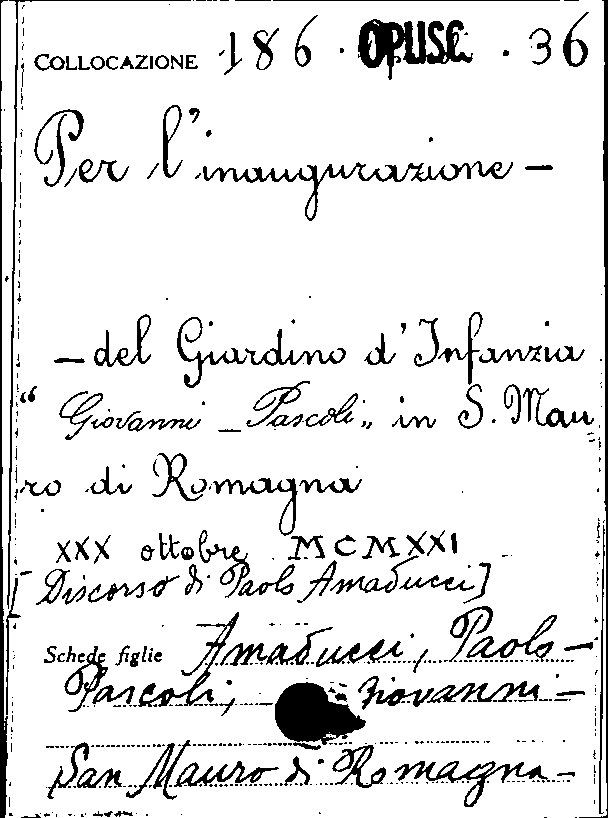 COLLOCAZIONE 186 . OPUSC. . 36
Per l'inaugurazione —
— del Giardino d'Infanzia
“ Giovanni Pascoli „ in S. Mau
ro di Romagna
XXX ottobre MCMXXI
[Discorso di Paolo Amaducci]
Schede figlie Amaducci, Paolo —
Pascoli, Giovanni —
San Mauro di Romagna —